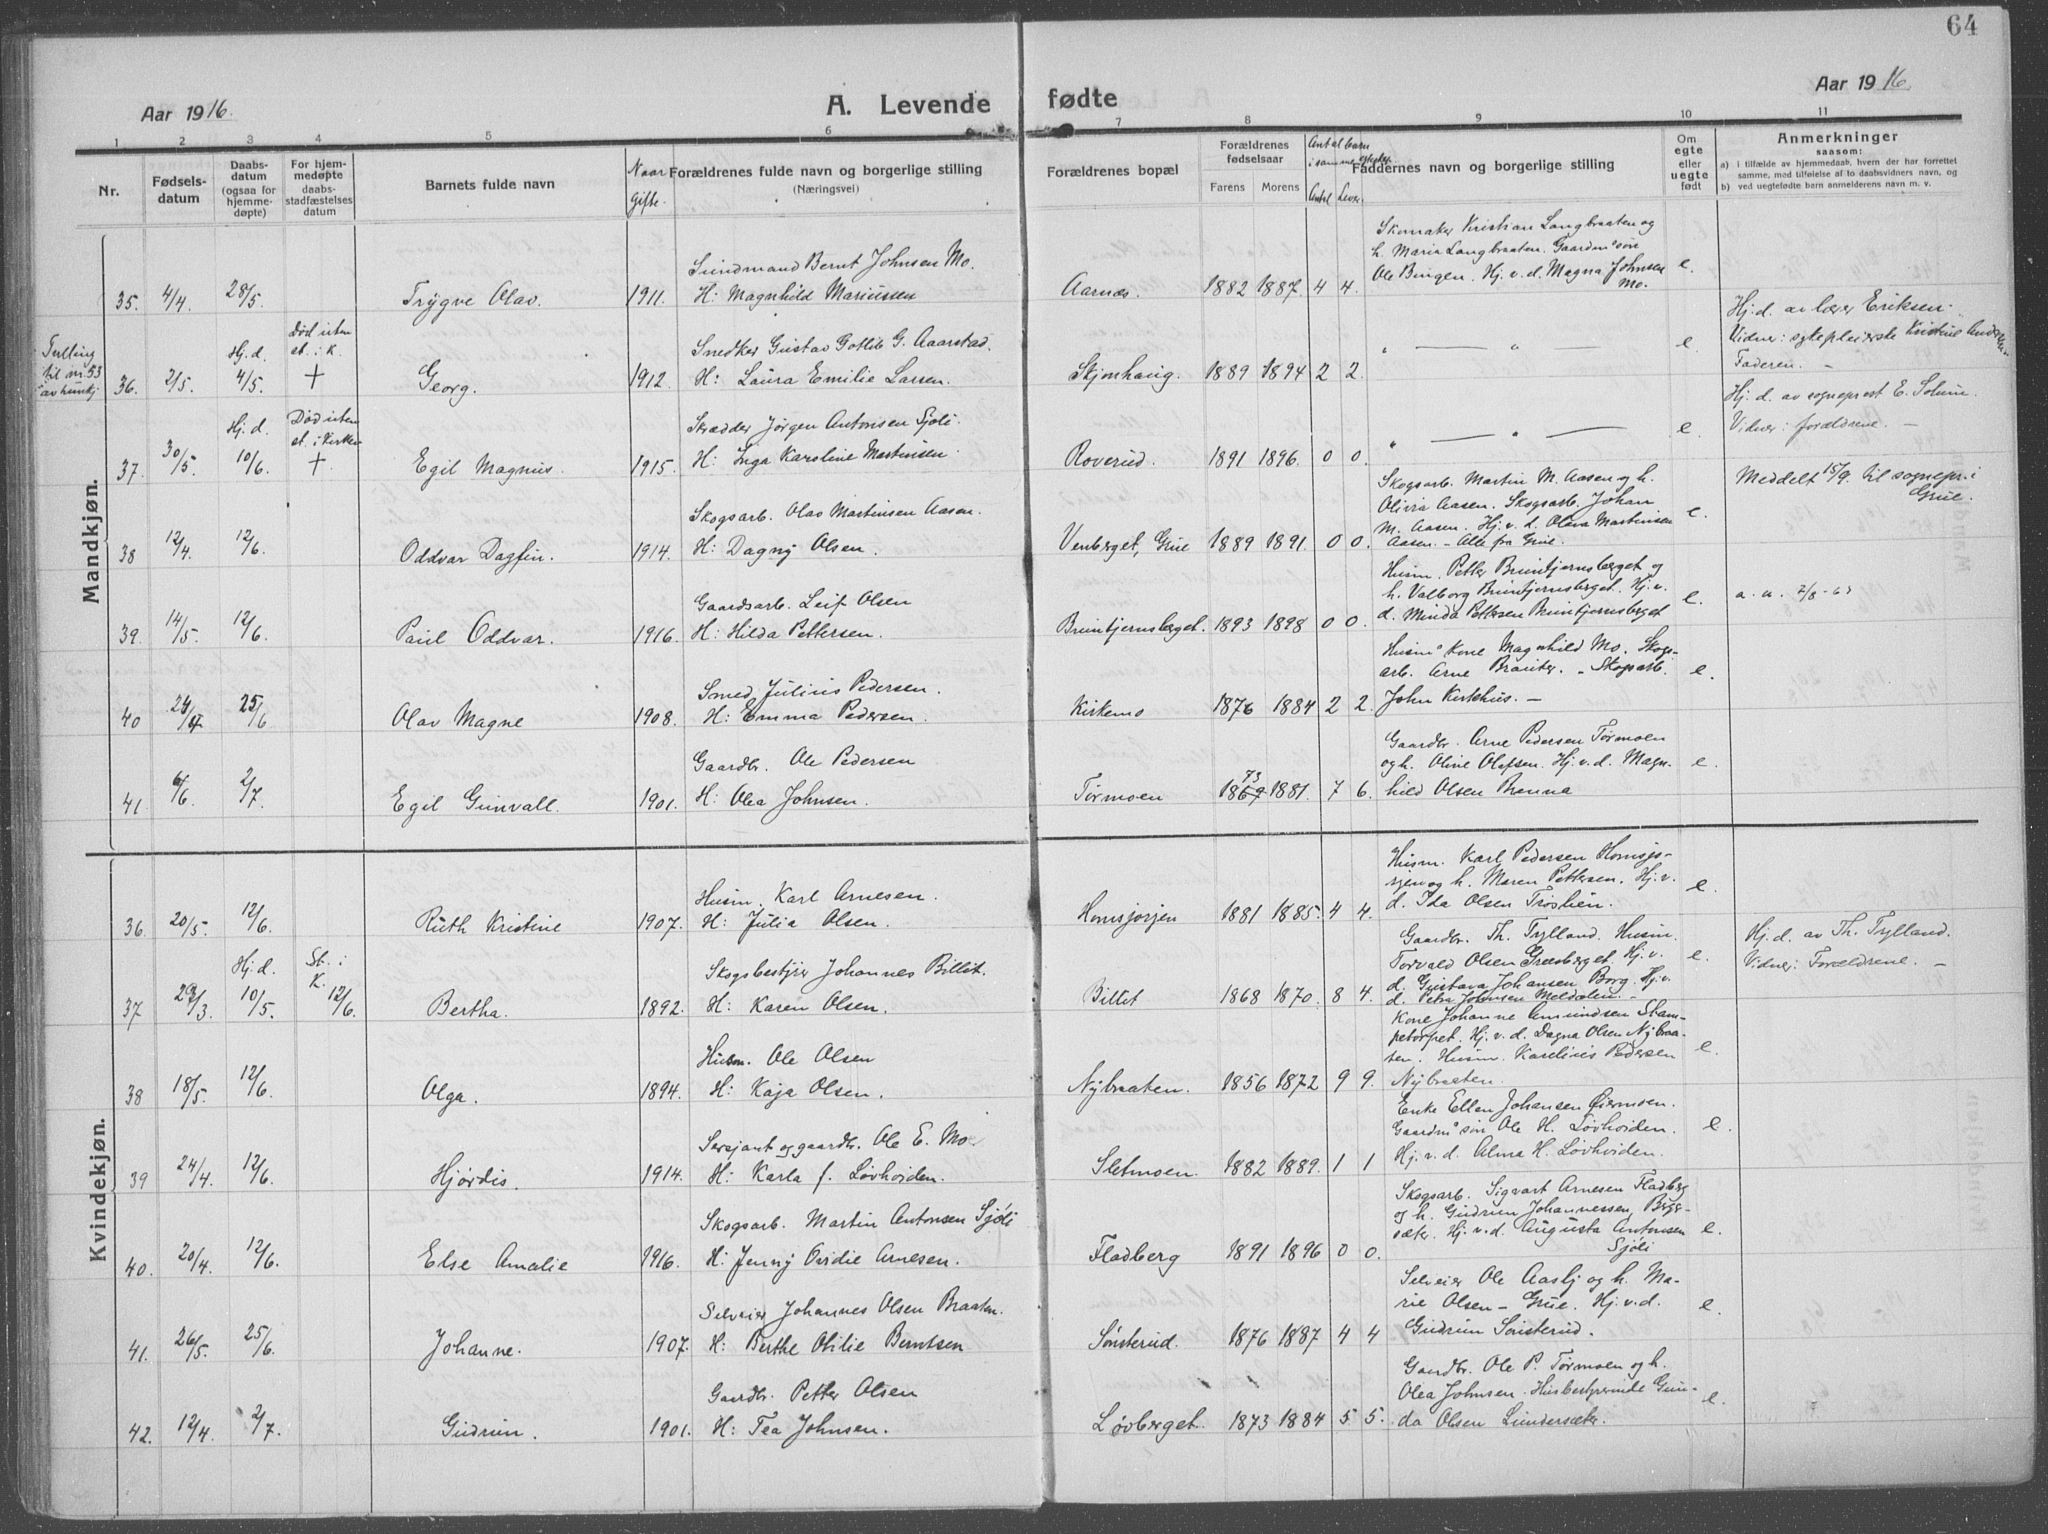 64
Aar 1916.
A. Levende fødte
Aar 1916.
1 2 3 4 5 6 7 8 9 10 11
Nr.
Fødsels-
datum
Daabs-
datum
(ogsaa for
hjemme-
døpte)
For hjem-
medøpte
daabs-
stadfæstelses
datum
Barnets fulde navn
Naar
gifte.
Forældrenes fulde navn og borgerlige stilling
(Næringsvei)
Forældrenes bopæl
Forældrenes
fødselsaar
Farens Morens
Antal barn
i samme egteskap
Antal Lever
Faddernes navn og borgerlige stilling
Om
egte
eller
uegte
født
Anmerkninger
saasom:
a) i tilfælde av hjemmedaab, hvem der har forrettet
samme, med tilføielse af to daabsvidners navn, og
b) ved uegtefødte barn anmelderens navn m. v.
Mandkjøn.
Skomaker Kristian Langbraaten og
h. Maria Langbraaten. Gaardm's søn
Sundmand Bernt Johnsen Mo.
Ole Bingen. Hj. v. d. Magna Johnsen
Mo.
35. 4/4. 28/5. Trygve Olav. 1911. H: Magnhild Mariussen Aarnæs. 1882 1887. 4 4. e.
Hj. d. av lærer Eriksen.
Død uten
st. i K.
Smedker Gustav Gotlib G. Aarstad.
Vidner: sykepleierske Kristine Andersen.
Faderen. –
Tvilling
til nr. 53
av hunkj
36. 2/5. Hj. d. 4/5. + Georg. 1912. H: Laura Emilie Larsen. Skjonhaug. 1889 1894 2 2. " — " — e.
Død uten
st. i Kirken
Skrædder Jørgen Antonsen Sjøli.
Hj. d. av sogneprest E. Solum.
Vidner: forældrene. –
37. 30/5. Hj. d. 10/6. + Egil Magnus. 1915. H: Inga Karoline Martinsen. Roverud. 1891 1896. 0 0. " — " — e.
Skogsarb. Martin M. Aasen og h.
Olivia Aasen. Skogsarb. Johan
M. Aasen. Hj. v. d. Olava Martinsen
Aasen. – Alle fra Grue.
Meddelt 15/9. til sognepr. i
Grue.
Skogsarb. Olav Martinsen Aasen.
38 12/4. 12/6. Oddvar Dagfin. 1914. H: Dagny Olsen. Venberget, Grue 1889 1891. 0 0. e.
Husm. Petter Bruntjernsberget og
h. Valborg Bruntjernsberget. Hj. v.
d. Minda Pettersen Bruntjernsberget
Gaardsarb. Leif Olsen
39. 14/5. 12/6. Paul Oddvar. 1916. H: Hilda Pettersen. Bruntjernsberget. 1893 1898 0 0. e.
Husm's Kone Magnhild Mo. Skogs-
arb. Arne Brauter. – Skogsarb.
John Kirkhus. –
Smed Julius Pedersen.
40 24/4 25/6 Olav Magne 1908. H: Emma Pedersen. Kirkemo 1876 1884 2 2. e.
Gaardbr. Arne Pedersen Tørmoen
og h. Oline Olafsen. Hj. v. d. Magn-
hild Olsen Brenna
Gaardbr. Ole Pedersen
41. 6/6. 2/7. Egil Gunvall. 1901. H: Olea Johnsen. Tørmoen 1869 73 1881. 7 6. e.
Kvindekjøn.
Husm. Karl Pedersen Hornsjø-
rjen og h. Maren Pettersen. Hj. v.
d. Ida Olsen Troshien.
Husm. Karl Arnesen.
36. 20/5. 12/6. Ruth Kristine 1907. H: Julia Olsen. Hornsjorjen 1881 1885. 4 4. e.
Gaardbr. Th. Tylland. Husm.
Torvald Olsen Grasberget. Hj. v.
d. Gustava Johansen Borg. Hj. v.
d. Petra Johnsen Meldalen. –
Hj. d. av Th. Tylland.
Vidner: Forældrene. –
St. i
K.
Skogsbestyrer Johannes Billit.
37 29/3. Hj. d. 10/5. 12/6. Bertha. 1892. H: Karen Olsen. Billet 1868 1870. 8 4. e.
Kone Johanne Amundsen Stam-
petorpet. Hj. v. d. Dagna Olsen Nybraa-
ten. Husm. Karelius Pedersen
Nybraaten.
Husm. Ole Olsen
38 18/5. 12/6. Olga. 1894. H: Kaja Olsen. Nybraaten. 1856 1872 9 9. e.
Enke Ellen Johansen Øiermoen.
Gaardm's søn Ole H. Løvhoiden.
Hj. v. d. Alma H. Løvhoiden.
Sersjant og gaardbr. Ole E. Mo.
39 24/4. 12/6. Hjørdis. 1914. H: Karla f. Løvhoiden. Sletmoen. 1882 1889. 1 1 e.
Skogsarb. Sigvart Arnesen Fladberg
og h. Gudrun Johannessen, Berg-
sæter. Hj. v. d. Augusta Antonsen
Sjøli
Skogsarb. Martin Antonsen Sjøli
40. 20/4. 12/6. Else Amalie 1916. H: Jenny Ovidie Arnesen. Fladberg 1891 1896 0 0. e.
Selveier Ole Aasby og h. Ma-
rie Olsen – Grue. Hj. v. d.
Gudrun Sønsterud.
Selveier Johannes Olsen Braaten.
41. 26/5. 25/6. Johanne. 1907. H: Berthe Otilie Berntsen Sønsterud. 1876 1887 4 4 e.
Gaardbr. Ole P. Tørmoen og h.
Olea Johnsen. Husbestyrerinde Gun-
da Olsen Lundersæter.
Gaardbr. Petter Olsen
42. 12/4. 2/7. Gudrun. 1901. H: Tea Johnsen. Løvberget. 1873 1884 5 5. e.